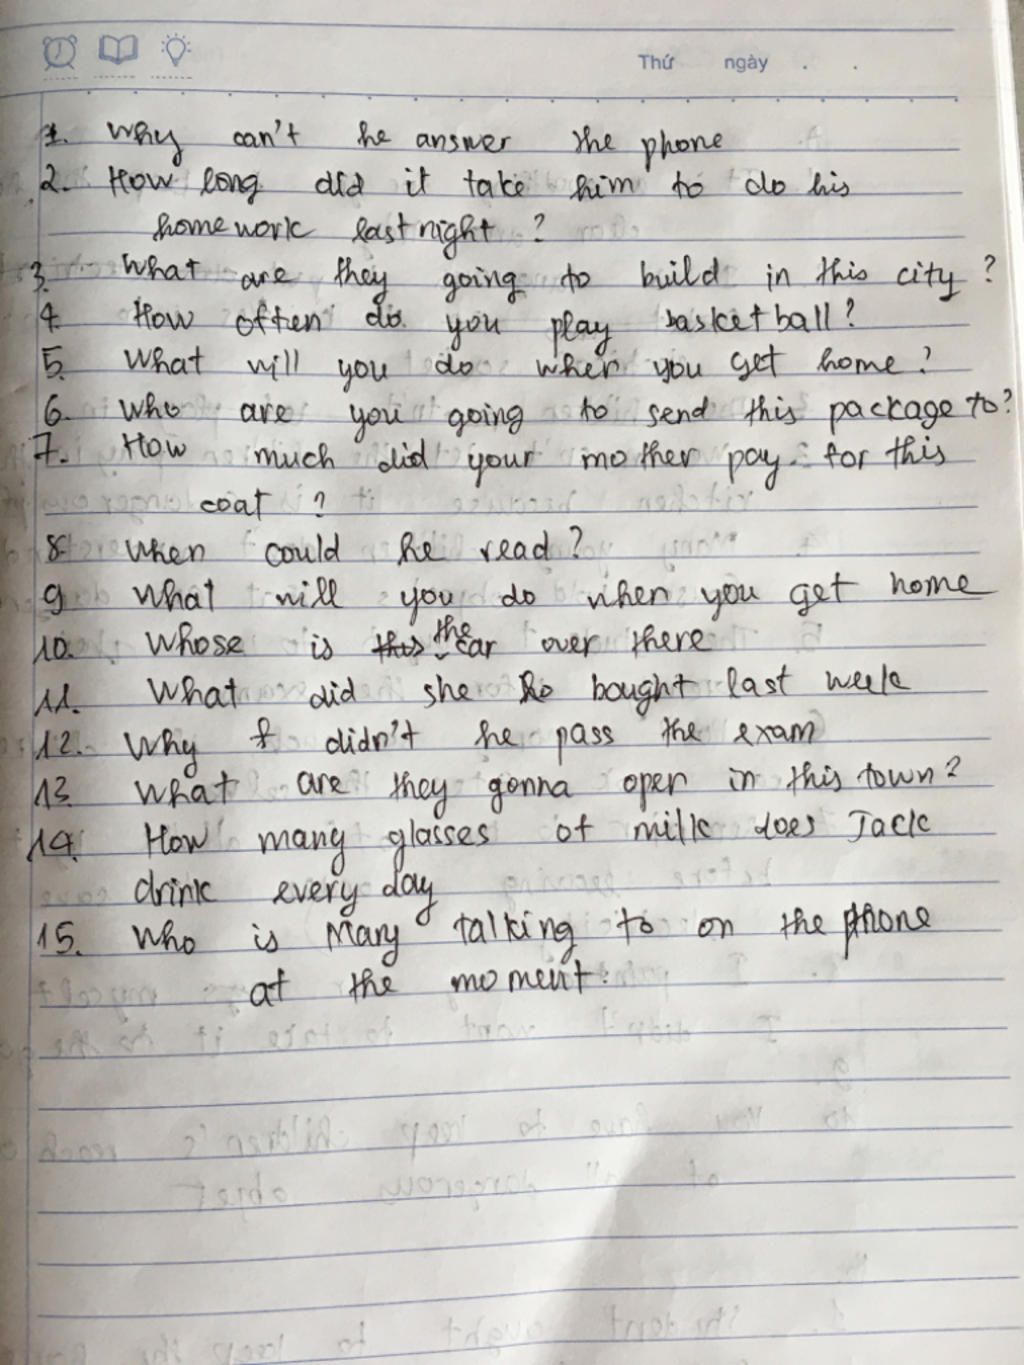 Thứ ngày . .
1. Why can't he answer the phone
2. How long did it take him to do his
homework last night ?
3. What are they going to build in this city ?
4. How often do you play basketball ?
5. What will you do when you get home ?
6. Who are you going to send this package to?
7. How much did your mother pay for this
coat ?
8. When could he read ?
9 What will you do when you get home
10. Whose is this the car over there
11. What did she bought last week
12. Why didn't he pass the exam
13. What are they gonna open in this town ?
14. How many glasses of milk does Jack
drink every day
15. Who is Mary talking to on the phone
at the moment.